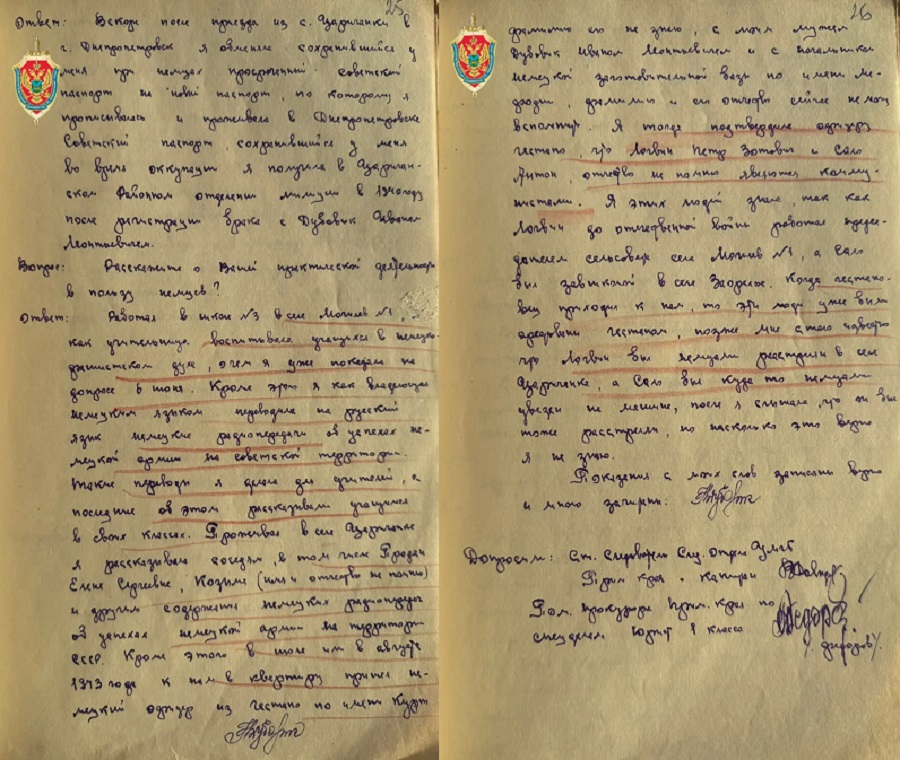 25
Ответ: Вскоре после приезда из с. Царичанки в
г. Днепропетровск я обменяла сохранившийся у
меня при немцах просроченный советский
паспорт на новый паспорт, по которому я
прописывалась и проживала в Днепропетровске
Советский паспорт, сохранившийся у меня
во время оккупации я получила в Царичан-
ском Районном отделении милиции в 1940 году
после регистрации брака с Дубовик Иваном
Леонтьевичем.
Вопрос: Расскажите о Вашей практической деятельности
в пользу немцев?
Ответ: Работая в школе №3 в селе Могилев №1,
как учительница воспитывала учащихся в немецко-
фашистском духе, о чем я уже показала на
допросе 6 июня. Кроме этого я как владеющая
немецким языком переводила на русский
язык немецкие радиопередачи об успехах не-
мецкой армии на советской территории.
Такие переводы я делала для учителей, а
последние об этом рассказывали учащимся
в своих классах. Проживая в селе Царичанке
я рассказывала соседям, в том числе Продан
Елене Сергеевне, (имя и отчество не помню)
и другим содержание немецких радиопередач
об успехах немецкой армии на территории
СССР. Кроме этого в июле или в августе
1943 года к нам в квартиру пришел не-
мецкий офицер из гестапо по имени Курт
26
фамилию его не знаю, с моим мужем
Дубовик Иваном Леонтьевичем и с начальником
немецкой заготовительной базы по имени
фамилию и его отчество сейчас не могу
вспомнить. Я тогда подтвердила офицеру
гестапо, что Логвин Петр Зотович и Сало
Антон, отчество не помню являются комму-
нистами. Я этих людей знала, так как
Логвин до отечественной войны работал предсе-
дателем сельсовета села Могилев №1, а Сало
был в селе Когда гестапо-
вец приходил к нам, то эти люди уже были
арестованы гестапом, позже мне стало известно
что Логвин был немцами расстрелян в селе
Царичанке, а Сало был куда то немцами
увезен на машине, после я слышала, что он был
тоже расстрелян, но насколько это верно
я не знаю.
Показания с моих слов записаны верно
и мною зачитаны.
Допросили: Ст. Следователь След. Отдела УМГБ
Прим. Края - капитан
Пом. Прокурора Прим. Края по
спецделам юрист 1 класса